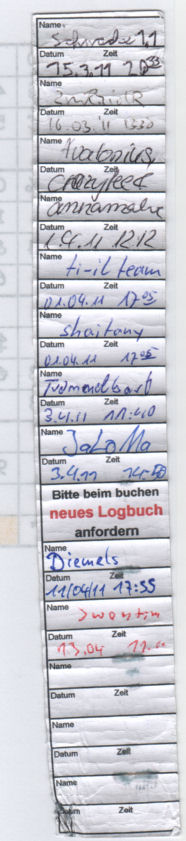 Name
Schwede11
Datum Zeit
15.3.11 20³³
Name
Datum Zeit
16.03.11 1330
Name
Datum Zeit
Crazyfeet
Name
annamalu
Datum Zeit
1.4.11 1212
Name
ti-il team
Datum Zeit
01.04.11 17⁰⁵
Name
shaitany
Datum Zeit
01.04.11 17⁰⁵
Name
Datum Zeit
3.4.11 11:40
Name
JaLoMa
Datum Zeit
3.4.11
Bitte beim buchen
neues Logbuch
anfordern
Name
Diemels
Datum Zeit
11/04/11 17:55
Name
Datum Zeit
13.04
Name
Datum Zeit
Name
Datum Zeit
Name
Datum Zeit